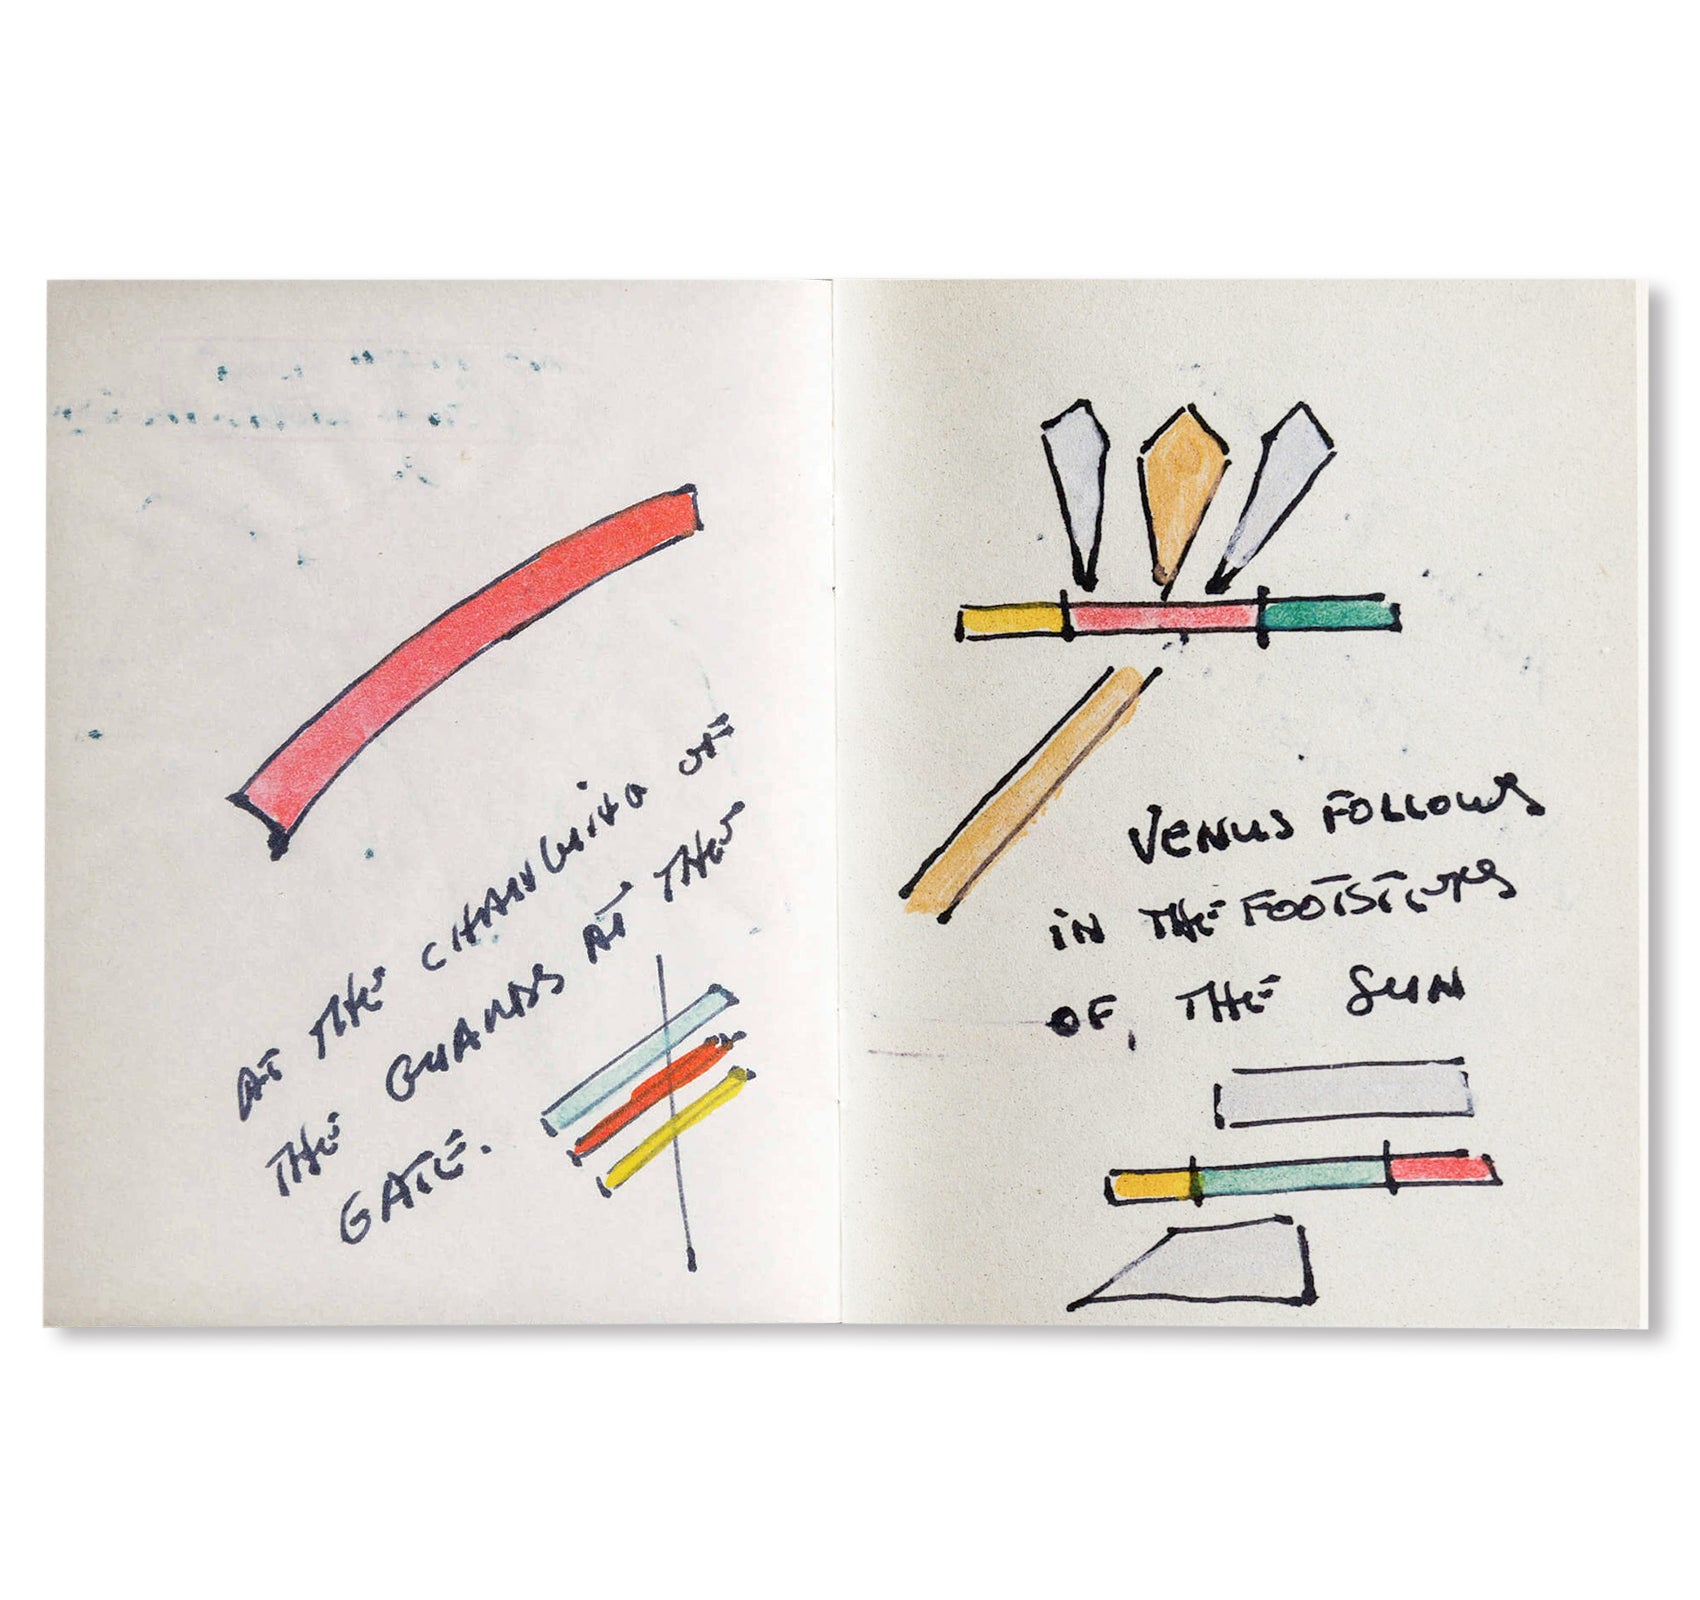 AT THE CHANGING OF
THE GUARDS AT THE
GATE.
VENUS FOLLOWS
IN THE FOOTSTEPS
OF, THE SUN